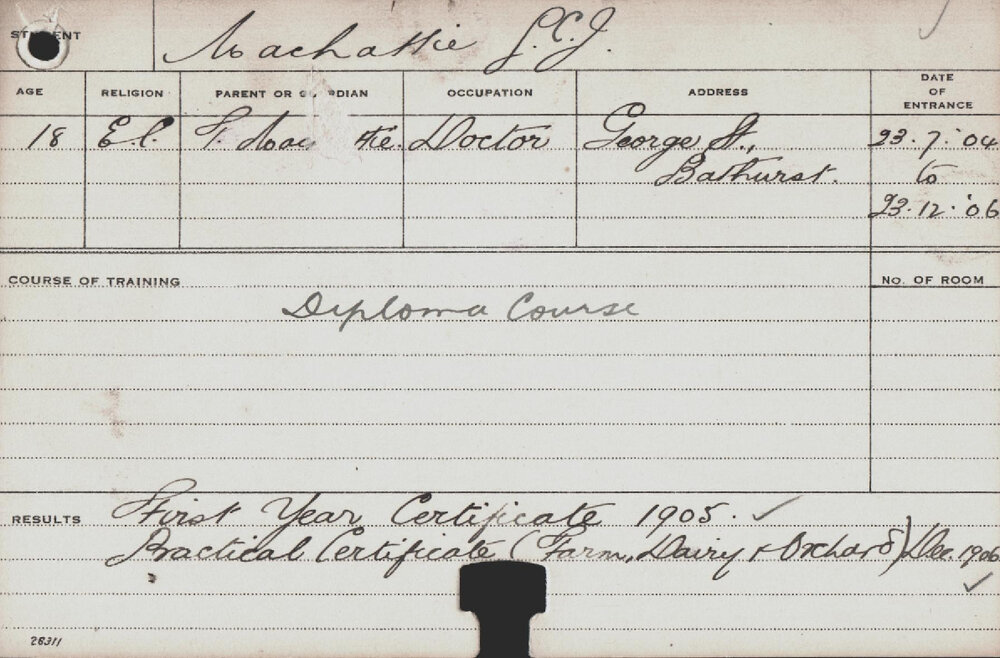 STUDENT Machattie
AGE RELIGION PARENT OR GUARDIAN OCCUPATION ADDRESS DATE OF ENTRANCE
18 E.C. Doctor George St., 23.7.'04
Bathurst. to
23.12.'06
COURSE OF TRAINING No. OF ROOM
Diploma Course
RESULTS First Year Certificate 1905. ✓
Practical Certificate (Farm, Dairy & Orchard) Dec. 1906
✓
28311